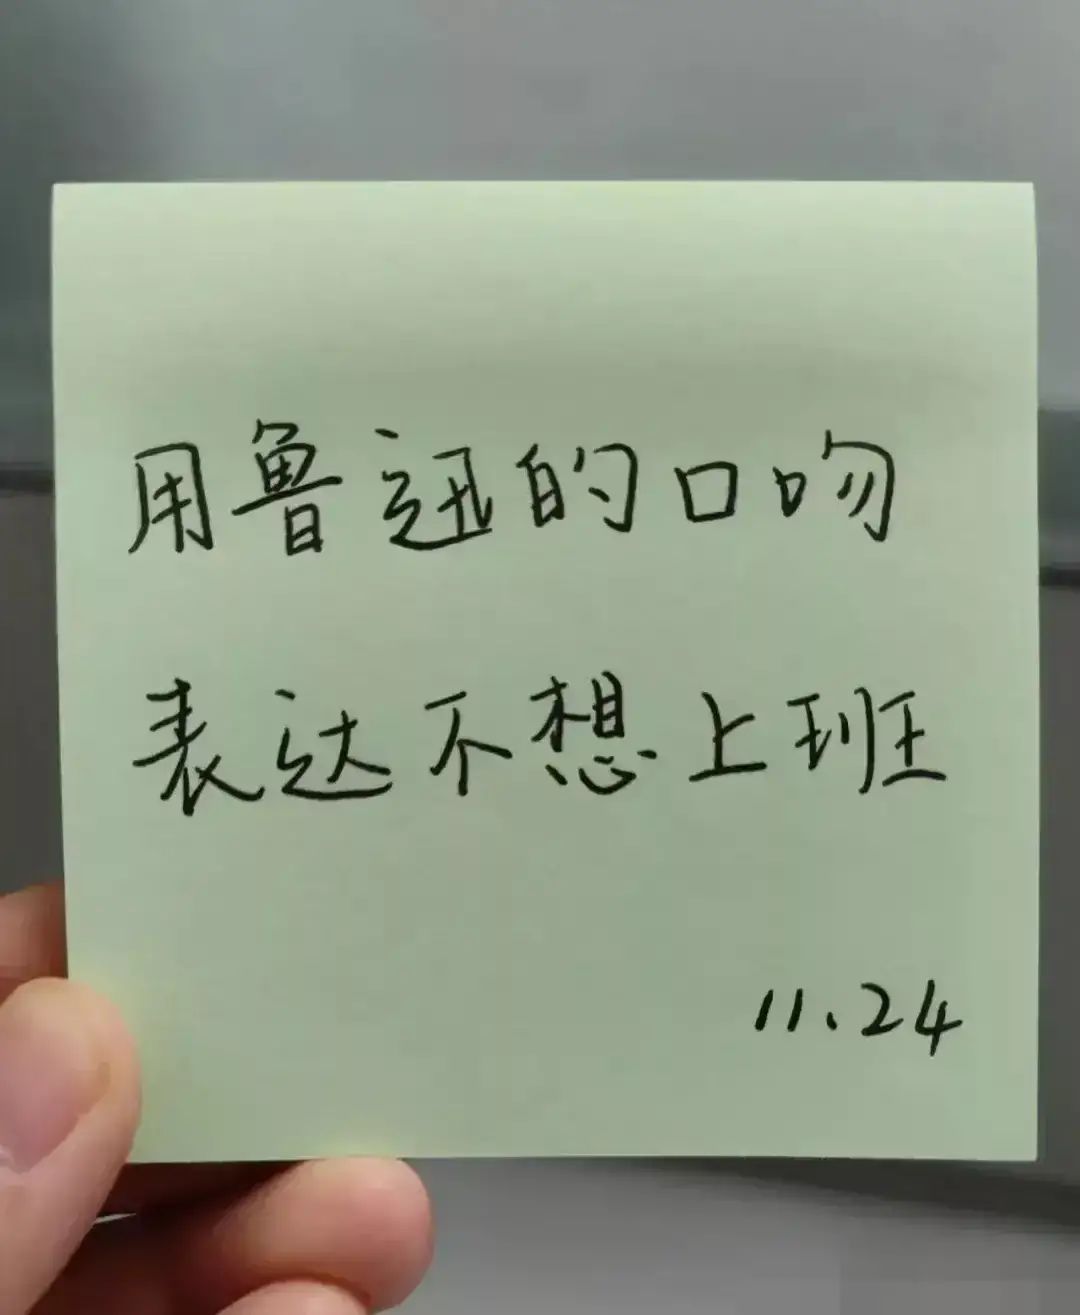 用鲁迅的口吻
表达不想上班
11.24